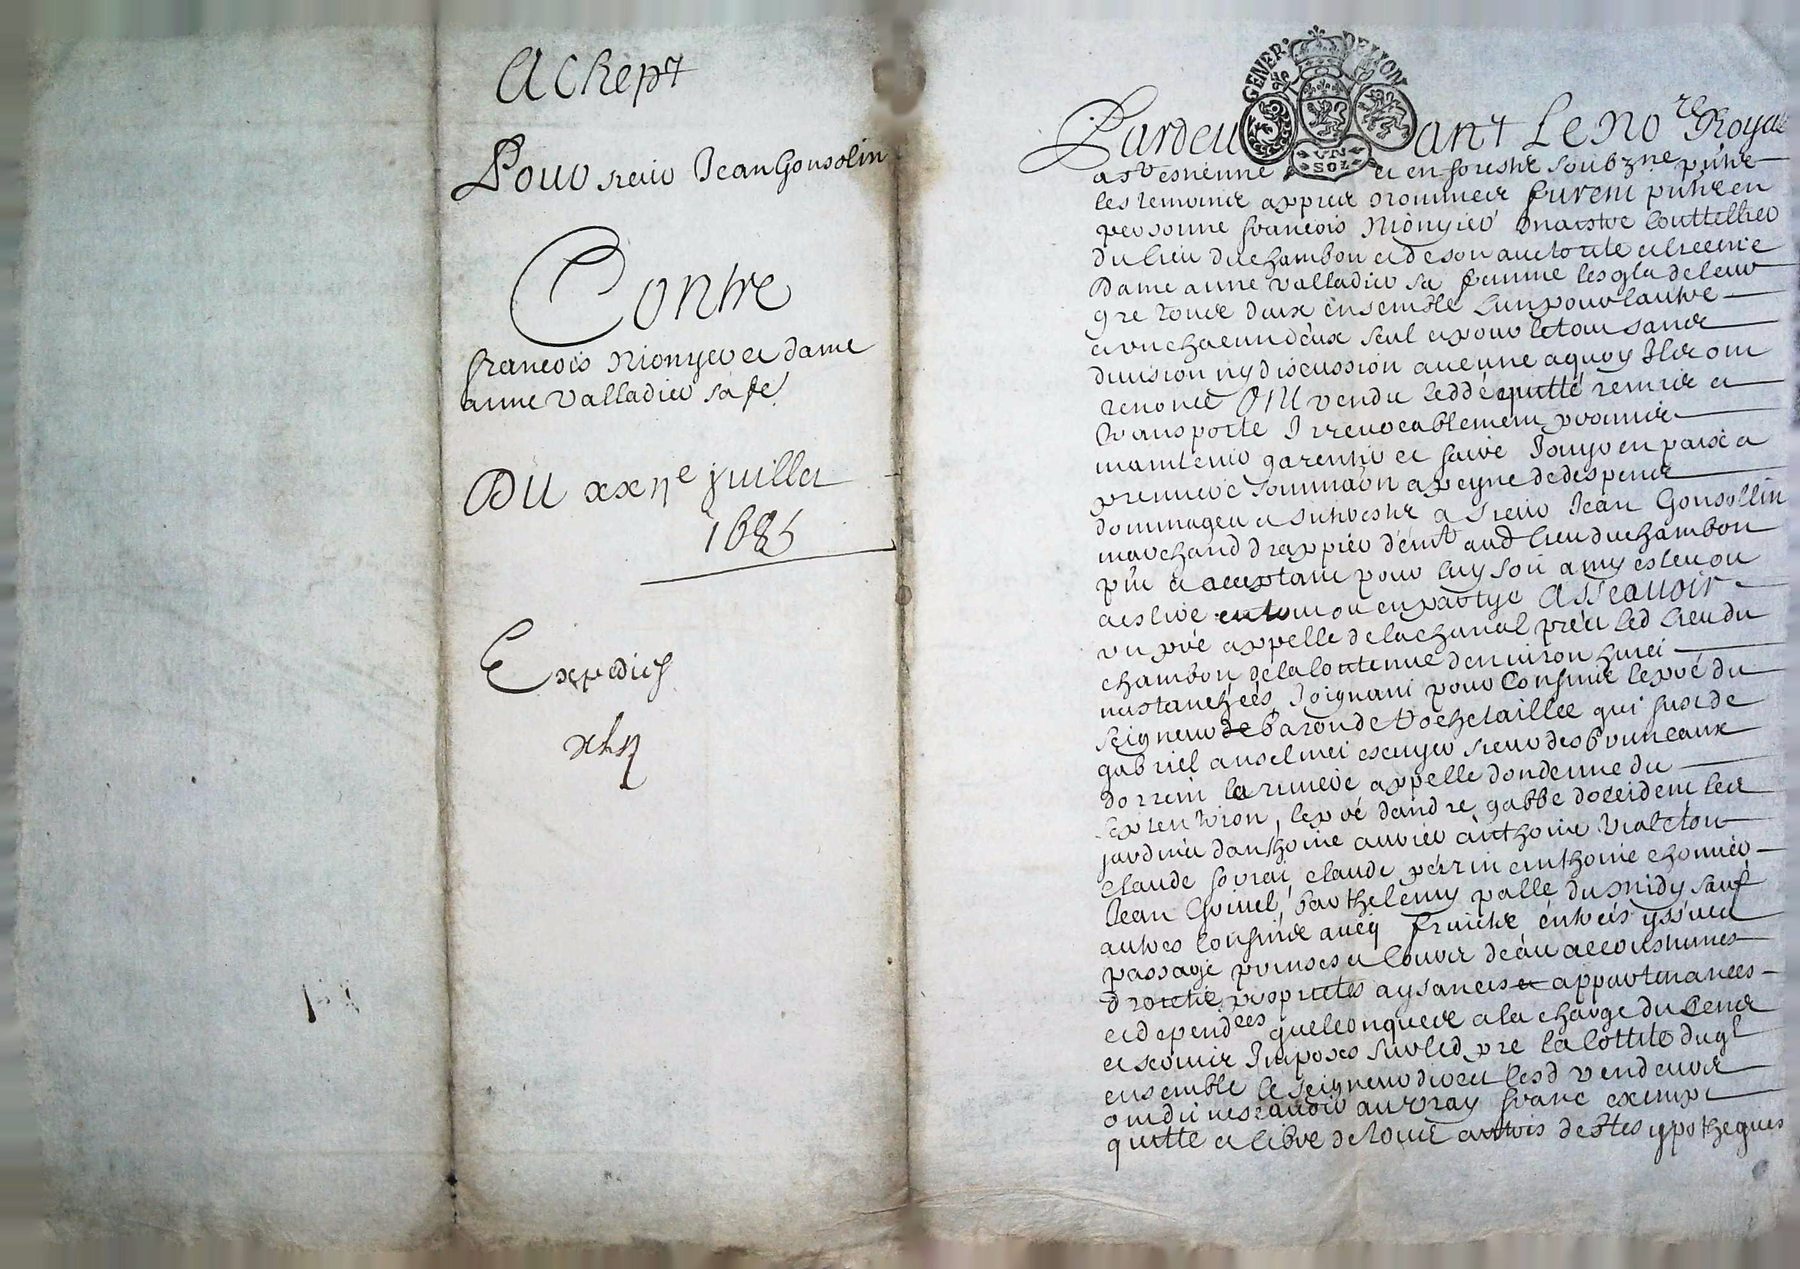 Achept
Pour sieur Jean Gonsolin
Contre
francois Nionyer et dame
anne Valladier sa fe
DU xxije juillet
1685
Expedies
GENER. DE LION
UN
SOL
Pardevant Le No.re Royal
a St estienne et en forestz soubzne pntz
les temoins apprez nommez furent pntz en
personne francois Nionyer maistre Couttellier
du lieu du chambon et de son auctorite et licence
Dame anne Valladier sa femme lesqlz de leur
gre tous deux ensemble lun pour lautre
et un chacun deux seul et pour le tout sans
division ny discussion aucune a quoy Ilz ont
renonce ONt vendu cedde quitte remis et
transporte Irrevocablement promis
maintenir garentir et faire Jouyr en paix a
premiere sommaon a peyne de despens
dommages et Intherestz a sieur Jean Gonsollin
marchand drappier demt aud lieu du chambon
pnt et acceptant pour luy son amy esleu ou
a eslire en tout ou en partye ASSCavoir
un pre appelle de la chanal pres led Lieu du
chambon de la Contenue denviron huict
mestanchees Joignant pour Confins le pre du
Seigneur de baron de Rochetaillee qui fust de
gabriel anselmet escuyer sieur des bruneaux
dorient la riviere appelle dondenne du
Septentrion, le pre dandre gabbe doccident les
jardins danthoine auvier anthoine Vialeton
Claude forest, claude perrin anthoine chonnier
Jean Chinel, barthelemy palle du midy sauf
autres Confins avecq fruictz entrees yssues
passage prinses et Cours deau accoustumes
droictz, proprietes aysances et appartenances
et dependces quelconques a la charge du Cens
et servis Imposes sur led pre la Cottite duql
ensemble le seigneur direct lesd vendeurs
ont dit ne scavoir au vray franc exempt
quitte et libre de tous autres debtes ypotheques